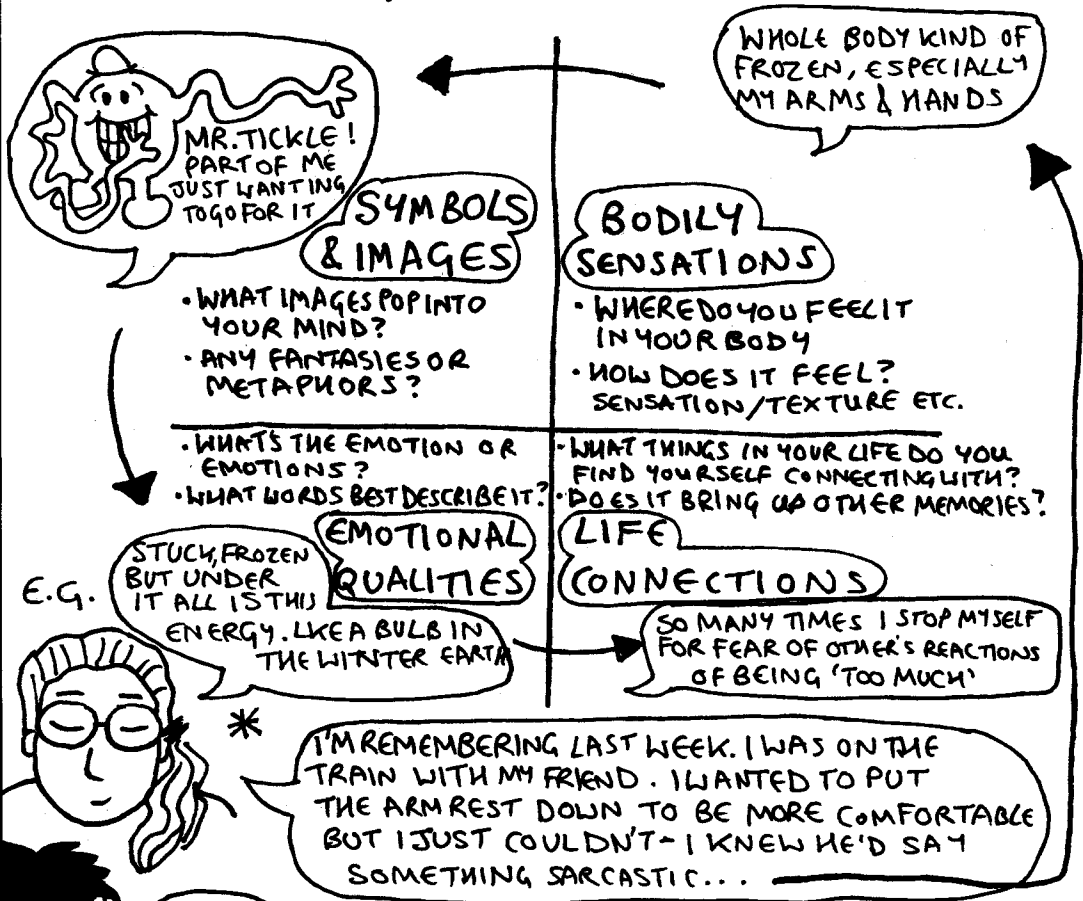 WHOLE BODY KIND OF
FROZEN, ESPECIALLY
MY ARMS & HANDS
MR. TICKLE!
PART OF ME
JUST WANTING
TO GO FOR IT
SYMBOLS
& IMAGES
• WHAT IMAGES POP INTO
YOUR MIND?
• ANY FANTASIES OR
METAPHORS?
BODILY
SENSATIONS
• WHERE DO YOU FEEL IT
IN YOUR BODY
• HOW DOES IT FEEL?
SENSATION/TEXTURE ETC.
• WHAT'S THE EMOTION OR
EMOTIONS?
• WHAT WORDS BEST DESCRIBE IT?
EMOTIONAL
QUALITIES
• WHAT THINGS IN YOUR LIFE DO YOU
FIND YOURSELF CONNECTING WITH?
• DOES IT BRING UP OTHER MEMORIES?
LIFE
CONNECTIONS
E.G.
STUCK, FROZEN
BUT UNDER
IT ALL IS THIS
ENERGY. LKE A BULB IN
THE WINTER EARTH
SO MANY TIMES I STOP MYSELF
FOR FEAR OF OTHER'S REACTIONS
OF BEING 'TOO MUCH'
*
I'M REMEMBERING LAST WEEK. I WAS ON THE
TRAIN WITH MY FRIEND. I WANTED TO PUT
THE ARM REST DOWN TO BE MORE COMFORTABLE
BUT I JUST COULDN'T - I KNEW HE'D SAY
SOMETHING SARCASTIC...